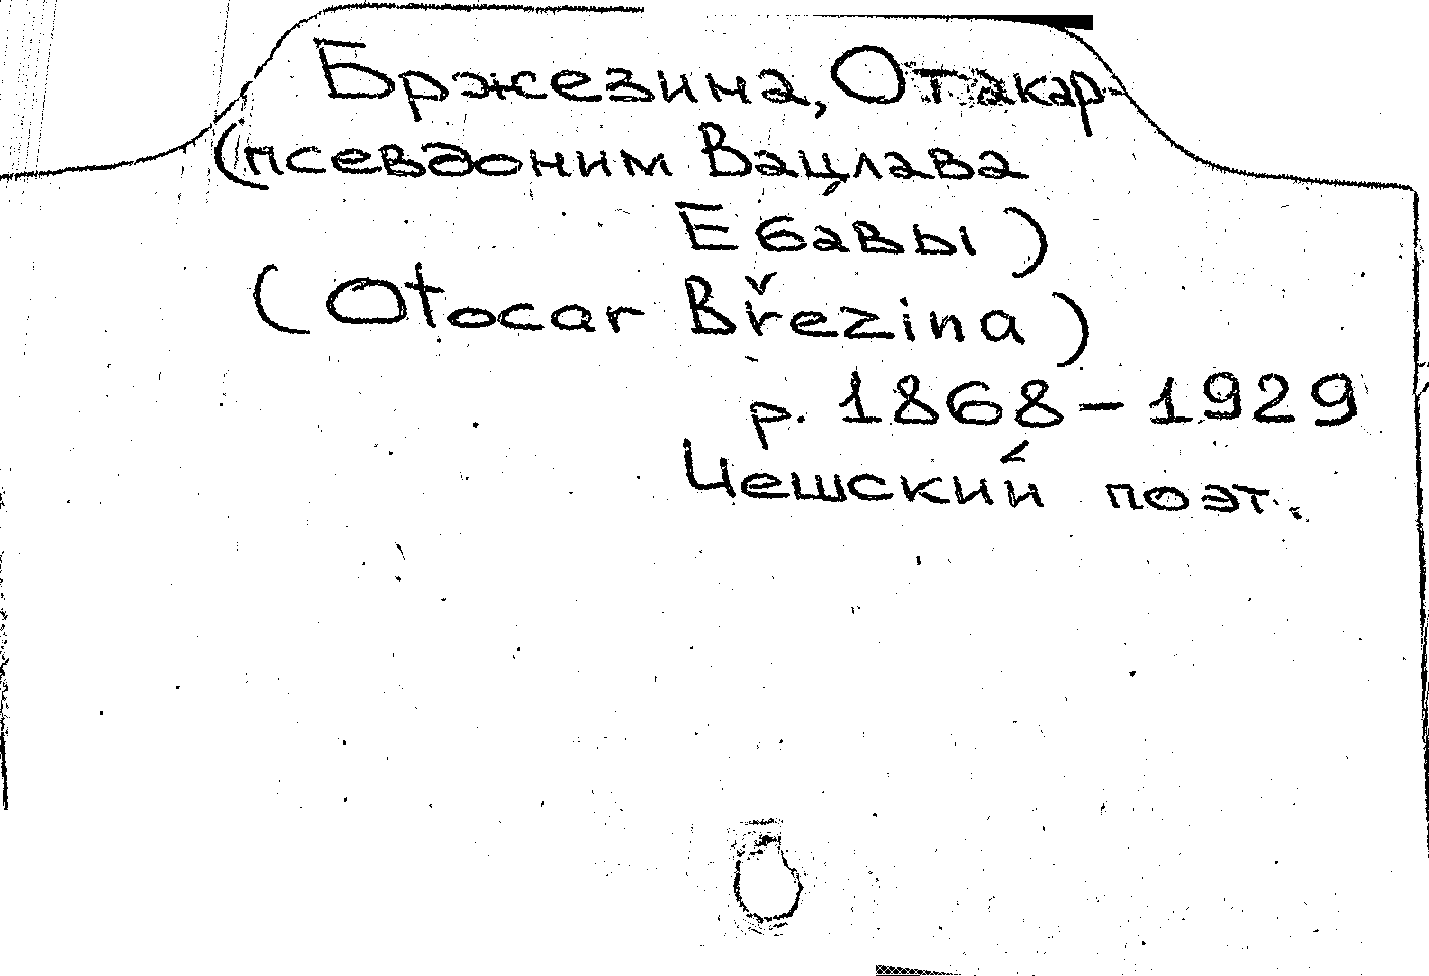 Бржезина, Отакар
(псевдоним Вацлава
Ебавы)
(Otocar Březina)
р. 1868-1929
Чешский поэт.